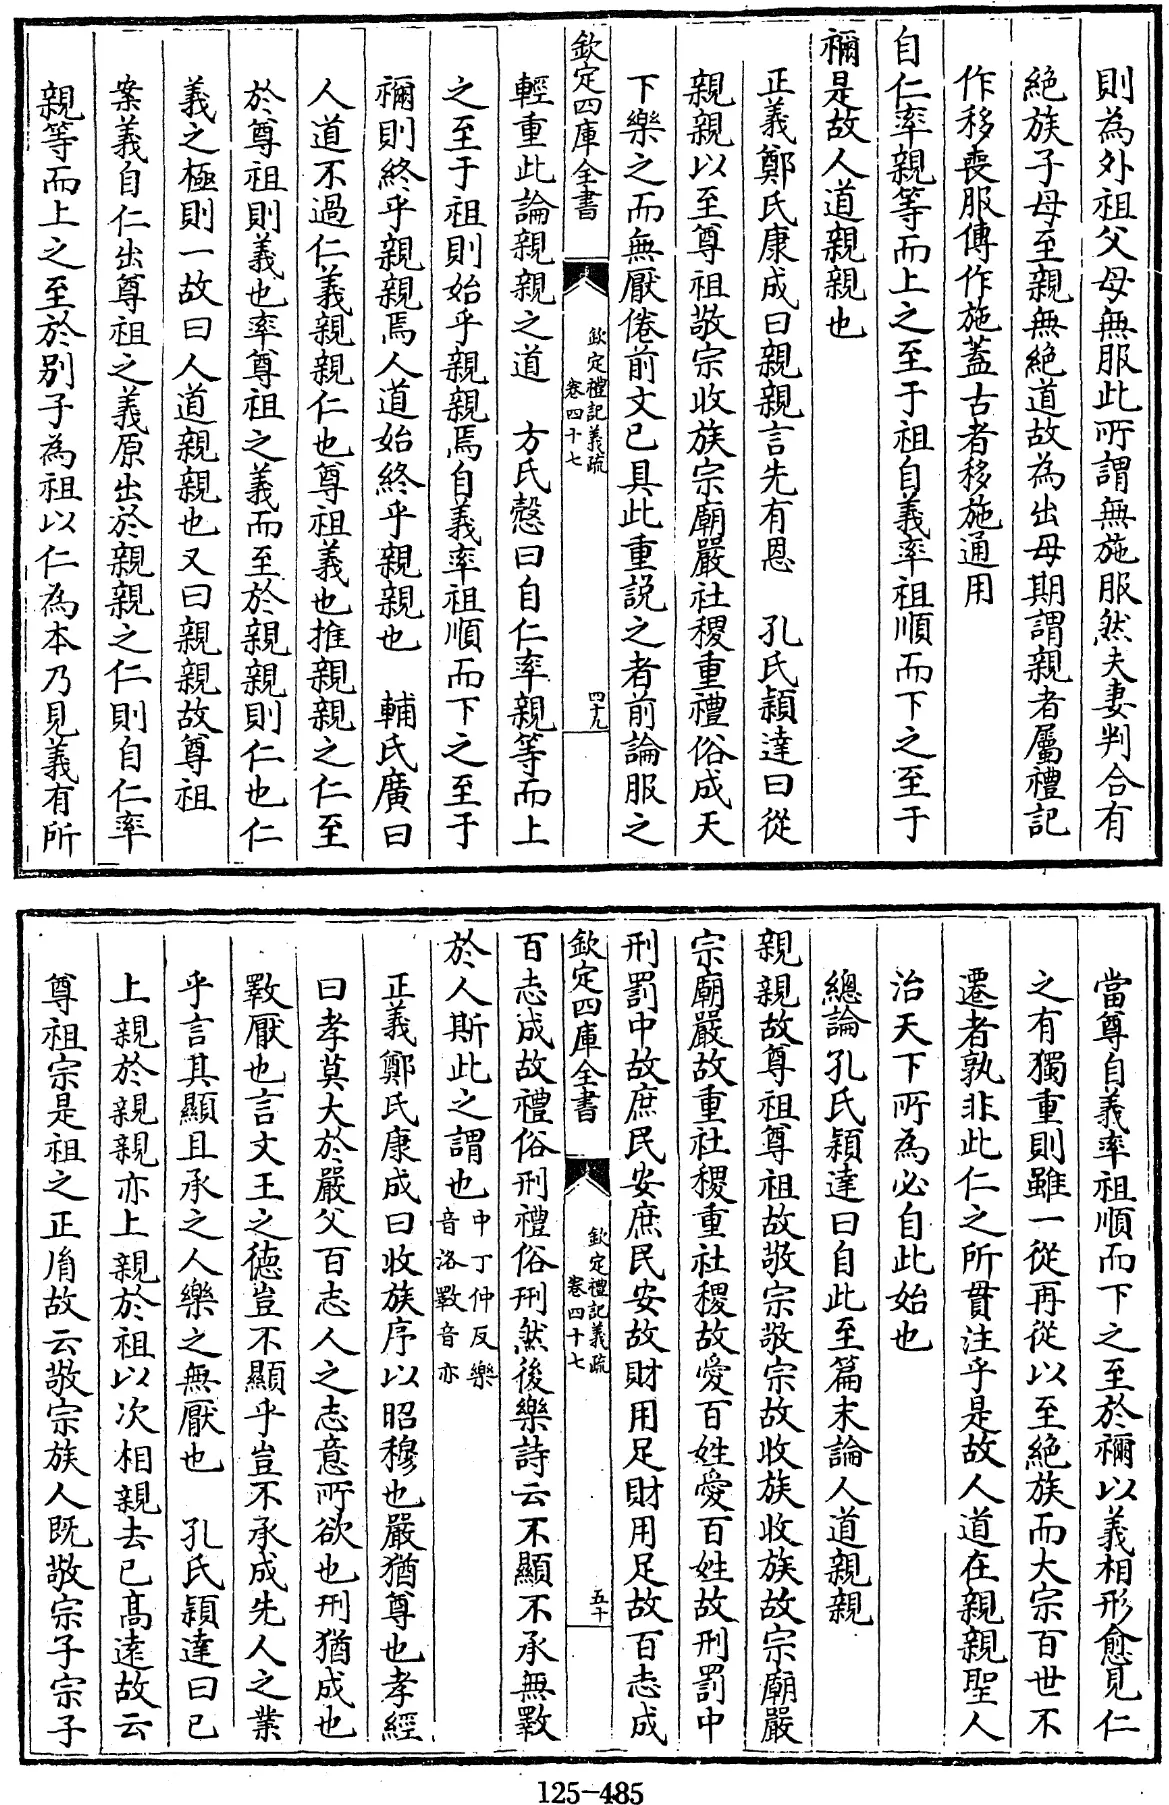 則為外祖父母無服此所謂無施服然夫妻判合有
絶族子母至親無絶道故為出母期謂親者屬禮記
作移喪服傳作施蓋古者移施通用
自仁率親等而上之至于祖自義率祖順而下之至于
禰是故人道親親也
正義鄭氏康成曰親親言先有恩　孔氏穎達曰從
親親以至尊祖敬宗收族宗廟嚴社稷重禮俗成天
下樂之而無厭倦前文已具此重説之者前論服之
欽定四庫全書
欽定禮記義疏
卷四十七
四十九
輕重此論親親之道　方氏慤曰自仁率親等而上
之至于祖則始乎親親焉自義率祖順而下之至于
禰則終乎親親焉人道始終乎親親也　輔氏廣曰
人道不過仁義親親仁也尊祖義也推親親之仁至
於尊祖則義也率尊祖之義而至於親親則仁也仁
義之極則一故曰人道親親也又曰親親故尊祖
案義自仁出尊祖之義原出於親親之仁則自仁率
親等而上之至於別子為祖以仁為本乃見義有所
當尊自義率祖順而下之至於禰以義相形愈見仁
之有獨重則雖一從再從以至絶族而大宗百世不
遷者孰非此仁之所貫注乎是故人道在親親聖人
治天下所為必自此始也
總論孔氏穎達曰自此至篇末論人道親親
親親故尊祖尊祖故敬宗敬宗故收族收族故宗廟嚴
宗廟嚴故重社稷重社稷故愛百姓愛百姓故刑罰中
刑罰中故庶民安庶民安故財用足財用足故百志成
欽定四庫全書
欽定禮記義疏
卷四十七
五十
百志成故禮俗刑禮俗刑然後樂詩云不顯不承無斁
於人斯此之謂也中丁仲反樂
音洛斁音亦
正義鄭氏康成曰收族序以昭穆也嚴猶尊也孝經
曰孝莫大於嚴父百志人之志意所欲也刑猶成也
斁厭也言文王之德豈不顯乎豈不承成先人之業
乎言其顯且承之人樂之無厭也　孔氏穎達曰已
上親於親親亦上親於祖以次相親去已髙遠故云
尊祖宗是祖之正胤故云敬宗族人既敬宗子宗子
125-485